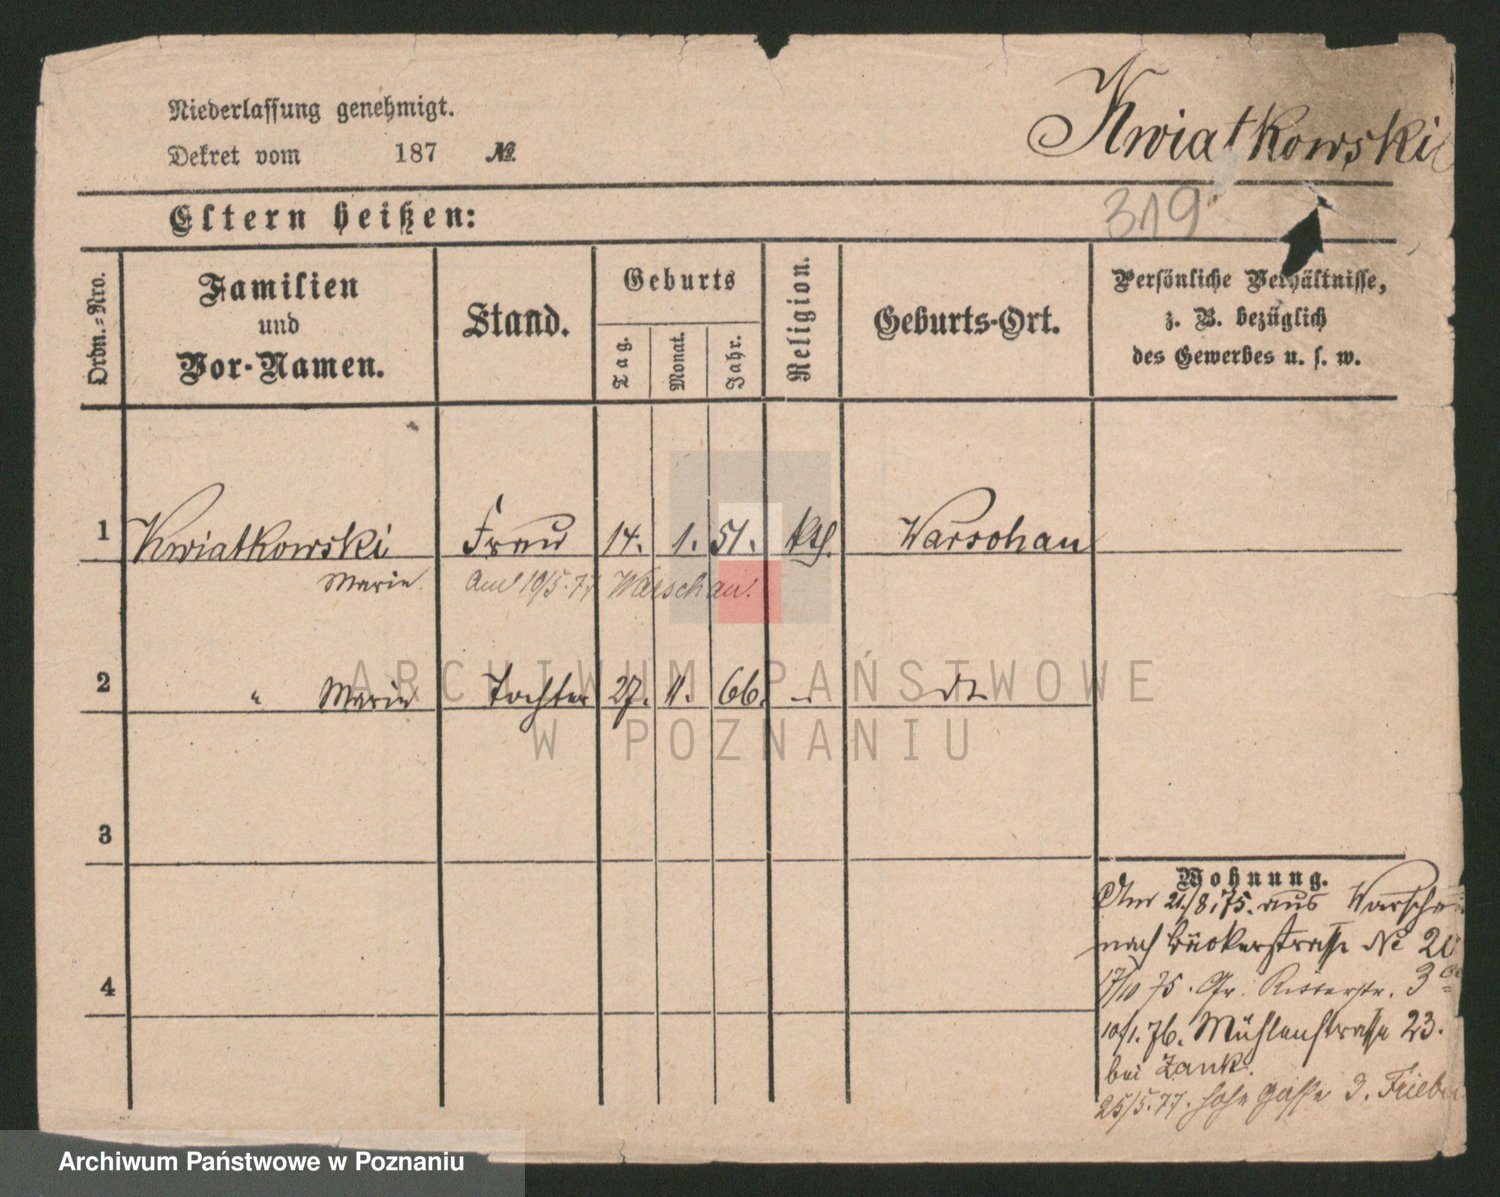 Niederlassung genehmigt.
Dekret vom 187 №
Kwiatkowski
319
Eltern heißen:
Ordn.-Nro.
Familien
und
Vor-Namen.
Stand.
Geburts
Tag.
Monat.
Jahr.
Religion.
Geburts-Ort.
Persönliche Verhältnisse,
z. B. bezüglich
des Gewerbes u. s. w.
1 Kwiatkowski Frau 14. 1. 51. kth. Warschau
Marie. 19/5.77 Warschau.
2 " Marie Tochter 27. 11. 66. - dt
3
4
Wohnung.
Am 21./8.75. aus Warschau
nach Bäckerstrasse №
17/10 75. Gr. Ritterstr. 3
10/1. 76. Mühlenstrasse 23.
bei Zank.
25/5.77. hohe Gasse 3.
ARCHIWUM PAŃSTWOWE
W POZNANIU
Archiwum Państwowe w Poznaniu